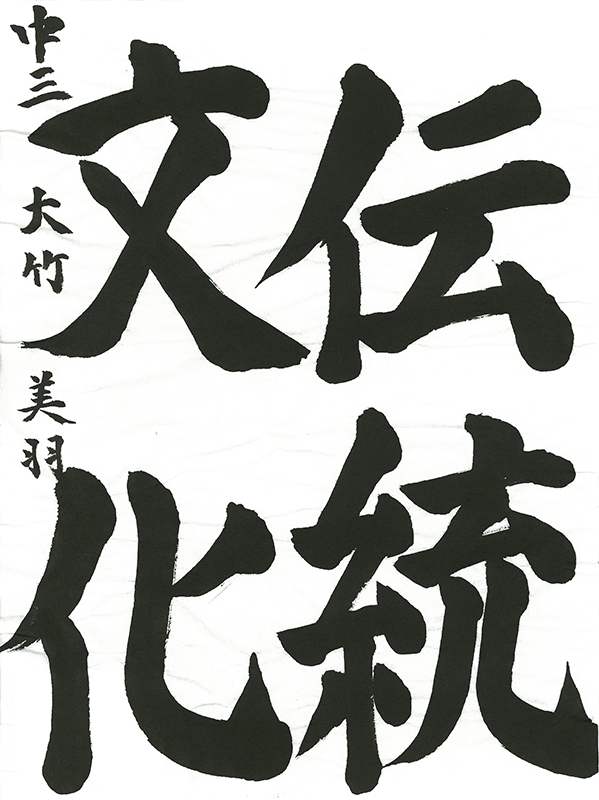 伝統
文化
中三 大竹 美羽